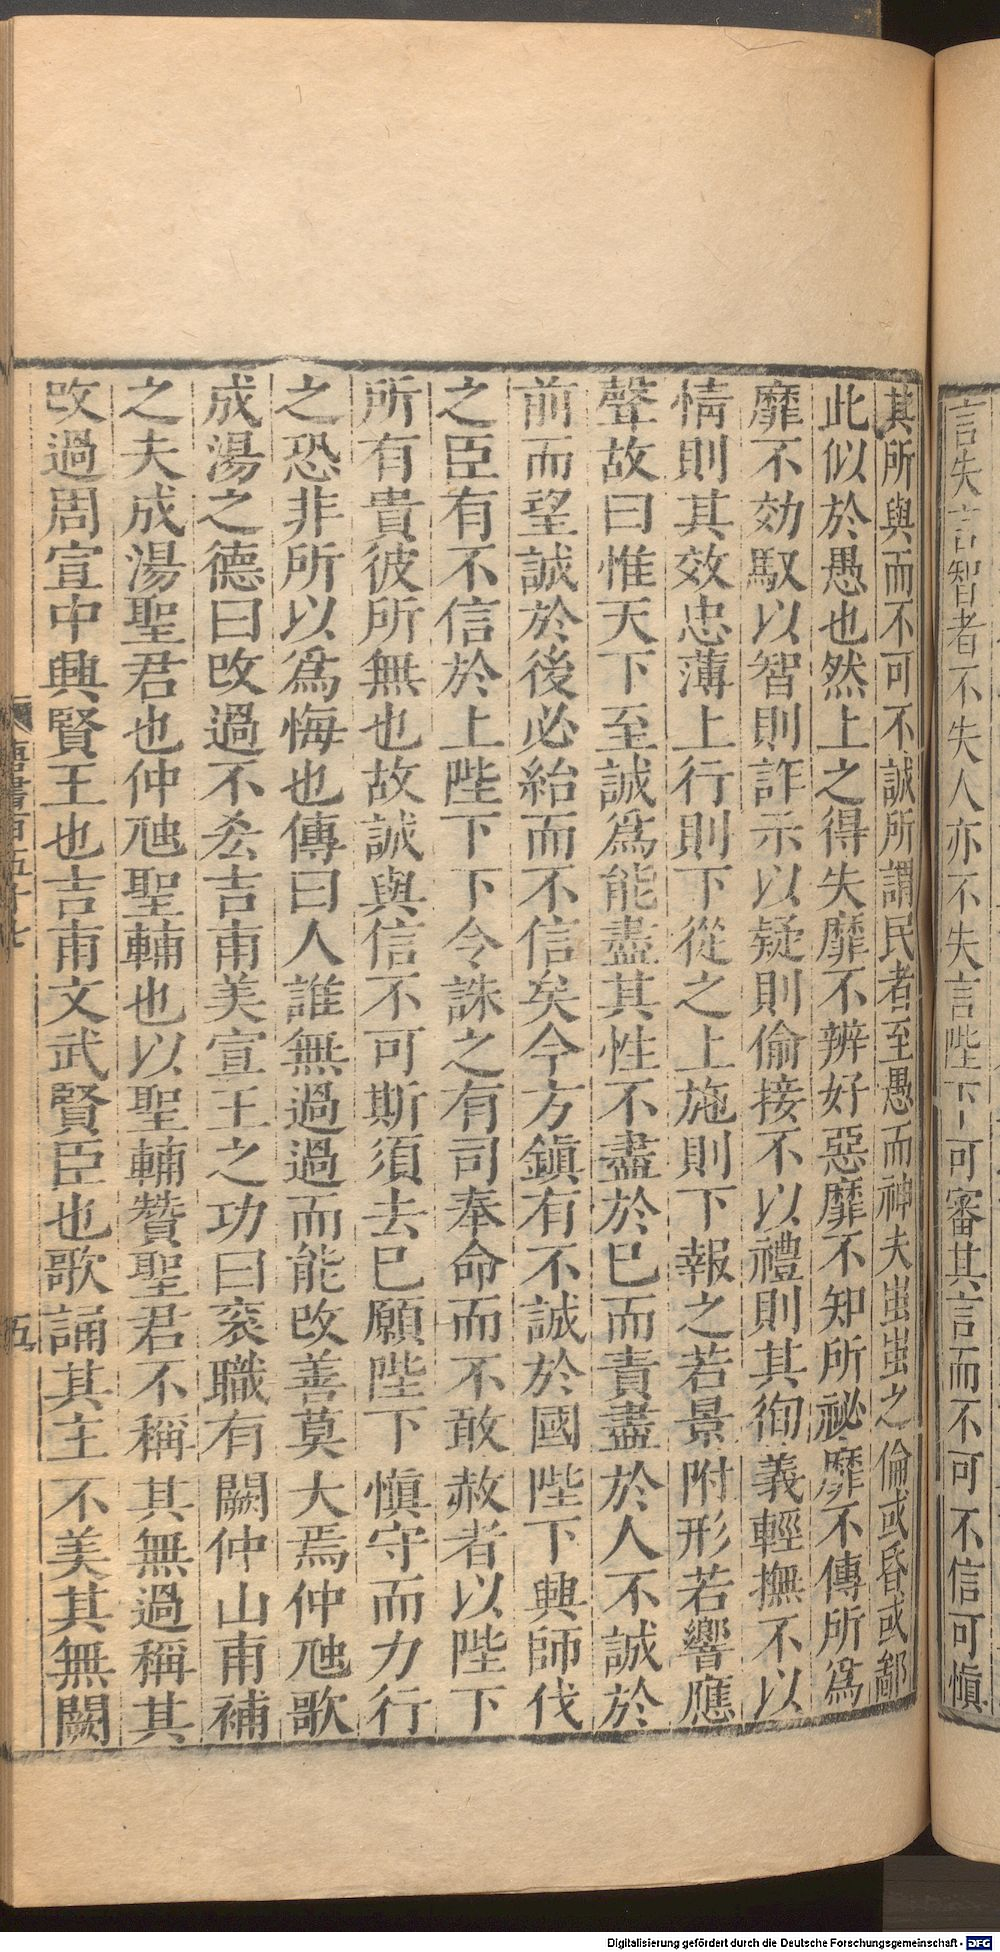 言失言智者不失人亦不失言陛下可審其言而不可不信可愼
其所與而不可不誠所謂民者至愚而神夫蚩蚩之倫或昏或鄙
此似於愚也然上之得失靡不辨好惡靡不知所祕靡不傳所爲
靡不効馭以智則詐示以疑則偷接不以禮則其徇義輕撫不以
情則其效忠薄上行則下從之上施則下報之若景附形若響應
聲故曰惟天下至誠爲能盡其性不盡於已而責盡於人不誠於
前而望誠於後必紿而不信矣今方鎮有不誠於國陛下興師伐
之臣有不信於上陛下下令誅之有司奉命而不敢赦者以陛下
所有貴彼所無也故誠與信不可斯須去已願陛下愼守而力行
之恐非所以爲悔也傳曰人誰無過過而能改善莫大焉仲虺歌
成湯之德曰改過不吝吉甫美宣王之功曰衮職有闕仲山甫補
之夫成湯聖君也仲虺聖輔也以聖輔贊聖君不稱其無過稱其
改過周宣中興賢王也吉甫文武賢臣也歌誦其主不美其無闕
唐書百五十七
五
Digitalisierung gefördert durch die Deutsche Forschungsgemeinschaft - DFG